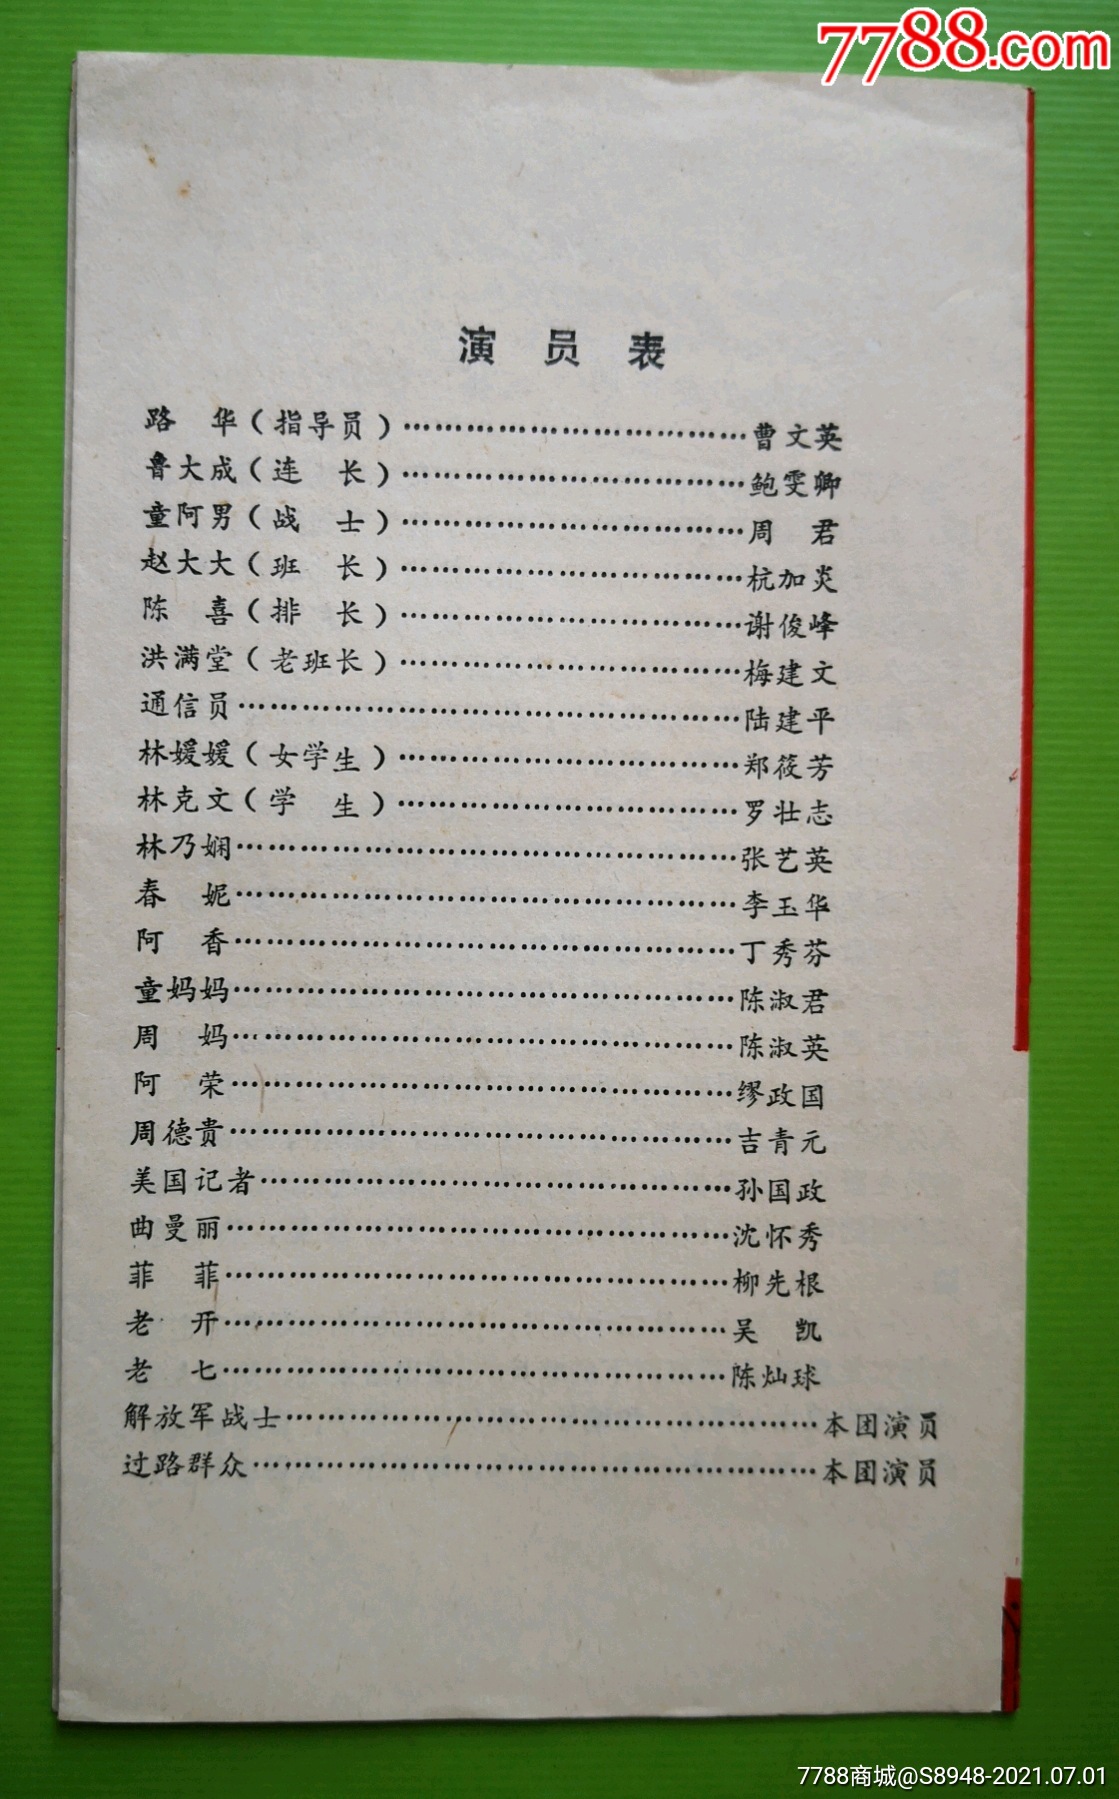 7788.com
演 员 表
路　华（指导员）……………………………曹文英
鲁大成（连　长）……………………………鲍雯卿
童阿男（战　士）……………………………周　君
赵大大（班　长）……………………………杭加炎
陈　喜（排　长）……………………………谢俊峰
洪满堂（老班长）……………………………梅建文
通信员…………………………………………陆建平
林媛媛（女学生）……………………………郑筱芳
林克文（学　生）……………………………罗壮志
林乃娴…………………………………………张艺英
春　妮…………………………………………李玉华
阿　香…………………………………………丁秀芬
童妈妈…………………………………………陈淑君
周　妈…………………………………………陈淑英
阿　荣…………………………………………缪政国
周德贵…………………………………………吉青元
美国记者………………………………………孙国政
曲曼丽…………………………………………沈怀秀
菲　菲…………………………………………柳先根
老　开…………………………………………吴　凯
老　七…………………………………………陈灿球
解放军战士……………………………………………本团演员
过路群众………………………………………………本团演员
7788商城@S8948-2021.07.01